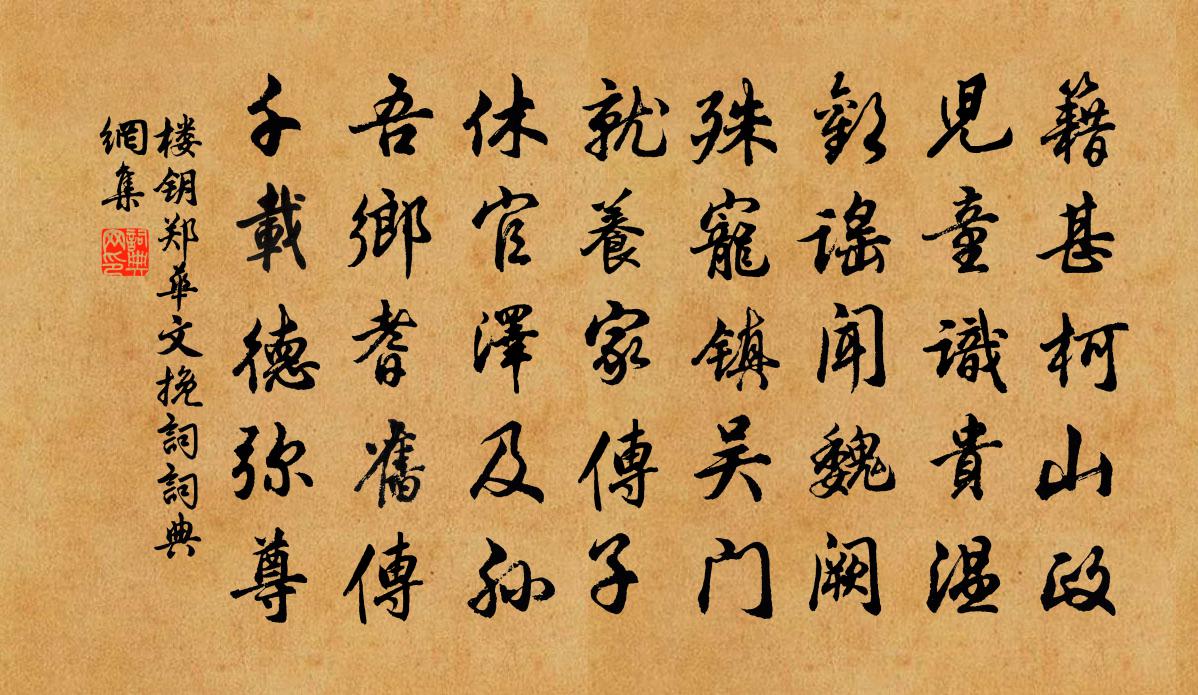 籍甚柯山政
児童識貴温
歡謡闻魏阙
殊寵镇吴门
就養家傳子
休官澤及孙
吾鄉耆舊傳
千載德弥尊
楼钥郑華文挽詞詞典
網集
詞典網印